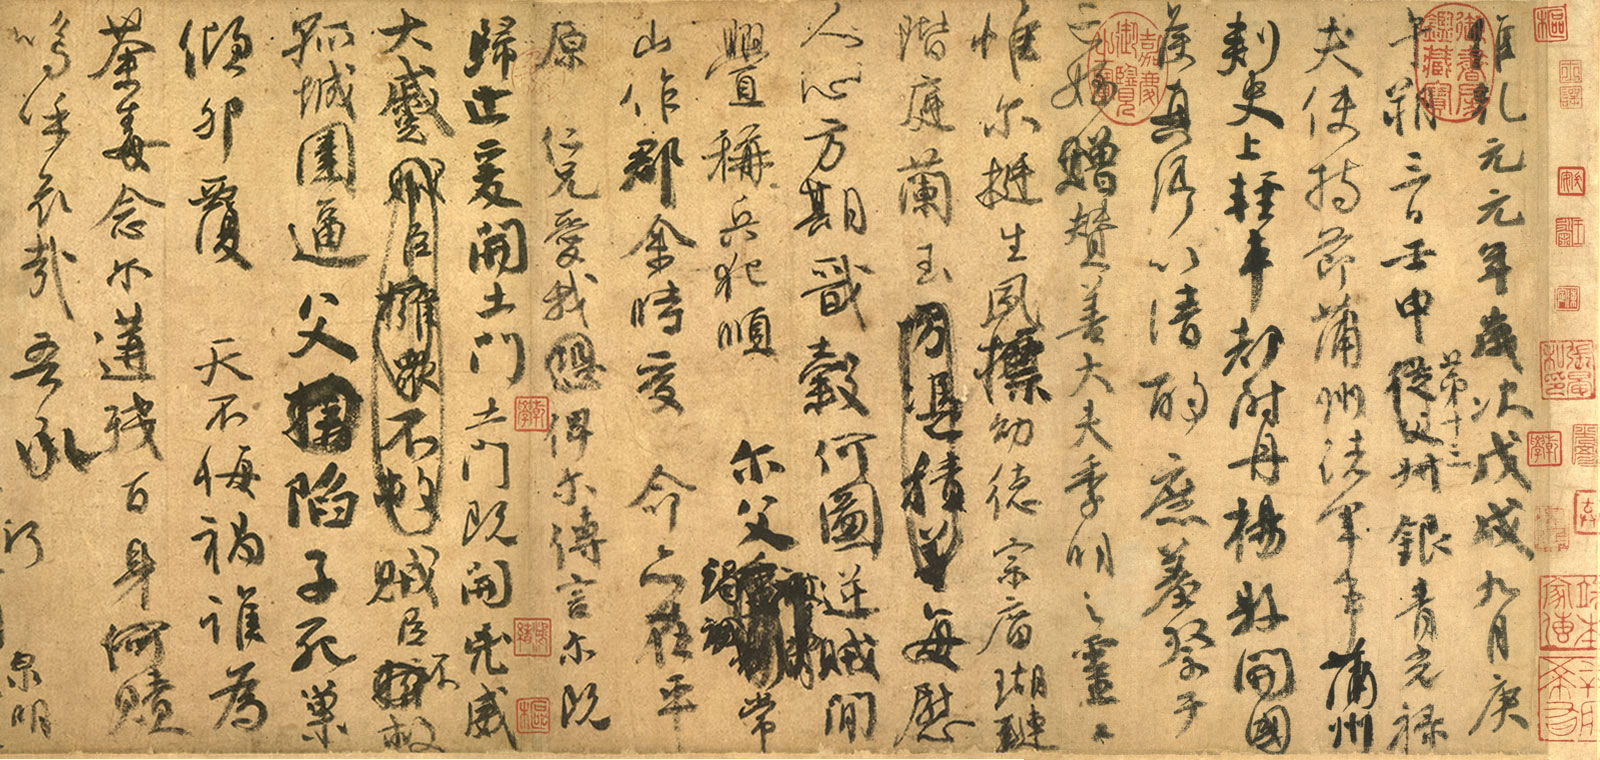 維乾元元年歲次戊戌九月庚
午朔三日壬申第十三從父銀青光祿
夫使持節蒲州諸軍事蒲州
刺史上輕車都尉丹楊縣開國
侯真卿以清酌庶羞祭于
亡姪贈贊善大夫季明之靈曰
惟爾挺生夙標幼德宗廟瑚璉
階庭蘭玉方憑積善每慰
人心方期戩穀何圖逆賊間
釁稱兵犯順爾父竭誠常
山作郡余時受命亦在平
原仁兄愛我恐俾爾傳言爾既
歸止爰開土門土門既開凶威
大蹙賊臣擁衆不救賊臣不救
孤城圍逼父陷子死巢
傾卵覆天不悔禍誰為
荼毒念爾遘殘百身何贖
嗚呼哀哉吾承
泉明